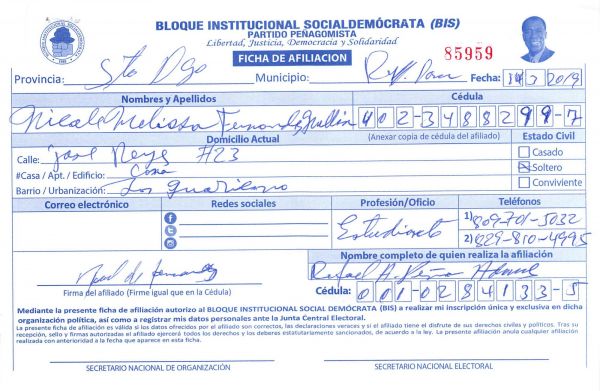 BLOQUE INSTITUCIONAL SOCIALDEMÓCRATA (BIS)
PARTIDO PEÑAGOMISTA
Libertad, Justicia, Democracia y Solidaridad
FICHA DE AFILIACION
85959
Provincia: Sto Dgo Municipio: Fecha: 2019
Nombres y Apellidos Cédula
Melissa 402-3488299-7
Domicilio Actual (Anexar copia de cédula del afiliado) Estado Civil
Calle: José Reyes #23 Casado
#Casa / Apt. / Edificio: Casa Soltero
Barrio / Urbanización: Los Conviviente
Correo electrónico Redes sociales Profesión/Oficio Teléfonos
Estudiante 1) 809-701-5032
2) 829-810-4995
Nombre completo de quien realiza la afiliación
Rafael A. Peña
Firma del afiliado (Firme igual que en la Cédula) Cédula: 001-0284133-5
Mediante la presente ficha de afiliación autorizo al BLOQUE INSTITUCIONAL SOCIAL DEMÓCRATA (BIS) a realizar mi inscripción única y exclusiva en dicha
organización política, así como a registrar mis datos personales ante la Junta Central Electoral.
La presente ficha de afiliación es válida si los datos ofrecidos por el afiliado son correctos, las declaraciones veraces y si el afiliado tiene el disfrute de sus derechos civiles y políticos. Tras su
recepción, sello y firmas autorizadas el afiliado ejercerá todos los derechos y los deberes estatutariamente sancionados, de acuerdo a la ley. La presente afiliación anula cualquier afiliación
realizada con anterioridad a la fecha que aparece en esta ficha.
SECRETARIO NACIONAL DE ORGANIZACIÓN SECRETARIO NACIONAL ELECTORAL